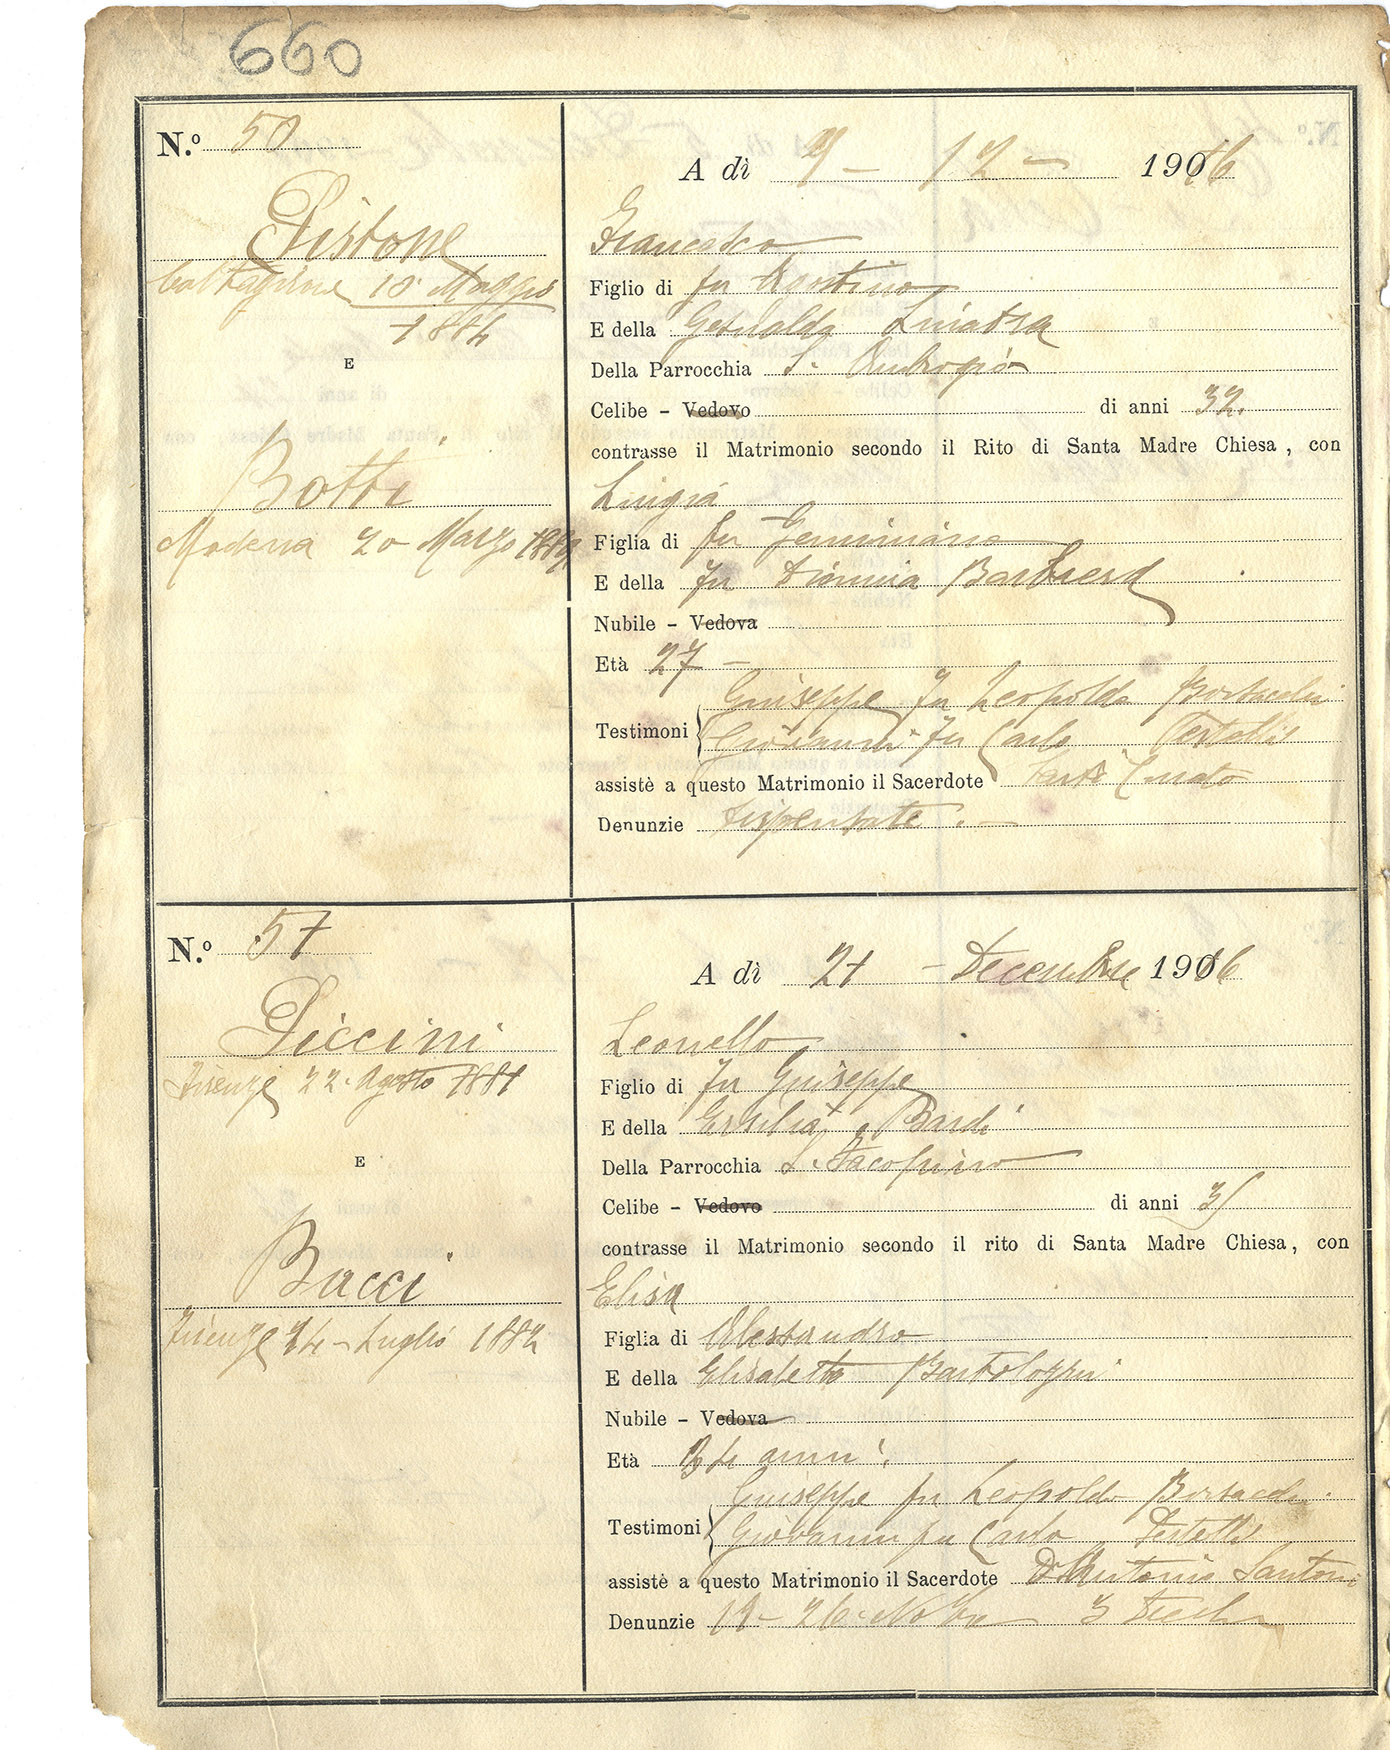 660
N.º 50
A dì 9 - 12 - 1916
Pistone
Caltagirone 10 Maggio
1884
E
Botti
Modena 20 Marzo
Francesco
Figlio di fu Agostino
E della Gesualda
Della Parrocchia S. Ambrogio
Celibe - Vedovo di anni 32.
contrasse il Matrimonio secondo il Rito di Santa Madre Chiesa, con
Luigia
Figlia di fu Geminiano
E della fu Barbieri
Nubile - Vedova
Età 27 -
Giuseppe fu Leopoldo Borsacchi
Testimoni
Giovanni fu Carlo Pestelli
assistè a questo Matrimonio il Sacerdote Curato
Denunzie Dispensate. -
N.º 51
A dì 21 - Decembre 1916
Piccini
Firenze 22. Agosto 1881
E
Bacci
Firenze 14 - Luglio 1882
Leonello
Figlio di fu Giuseppe
E della Ersilia Bardi
Della Parrocchia S. Jacopino
Celibe - Vedovo di anni 35
contrasse il Matrimonio secondo il rito di Santa Madre Chiesa, con
Elisa
Figlia di Alessandro
E della Elisabetta Bartolozzi
Nubile - Vedova
Età 34 anni.
Giuseppe fu Leopoldo Borsacchi.
Testimoni
Giovanni fu Carlo Pestelli
assistè a questo Matrimonio il Sacerdote D. Antonio Santoni
Denunzie 19 - 26 - Nobre 3